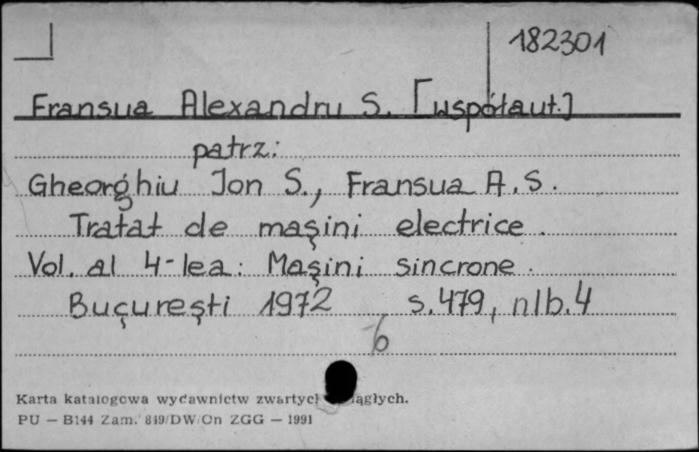 182301
Fransua Alexandru S. [współaut.]
patrz:
Gheorghiu Jon S., Fransua A.S.
Tratat de mașini electrice.
Vol. al 4-lea: Mașini sincrone.
Bucureşti 1972 s. 479, nlb. 4
6
Karta katalogowa wydawnictw zwartych ciągłych.
PU — B144 Zam. 849/DW/On ZGG — 1991